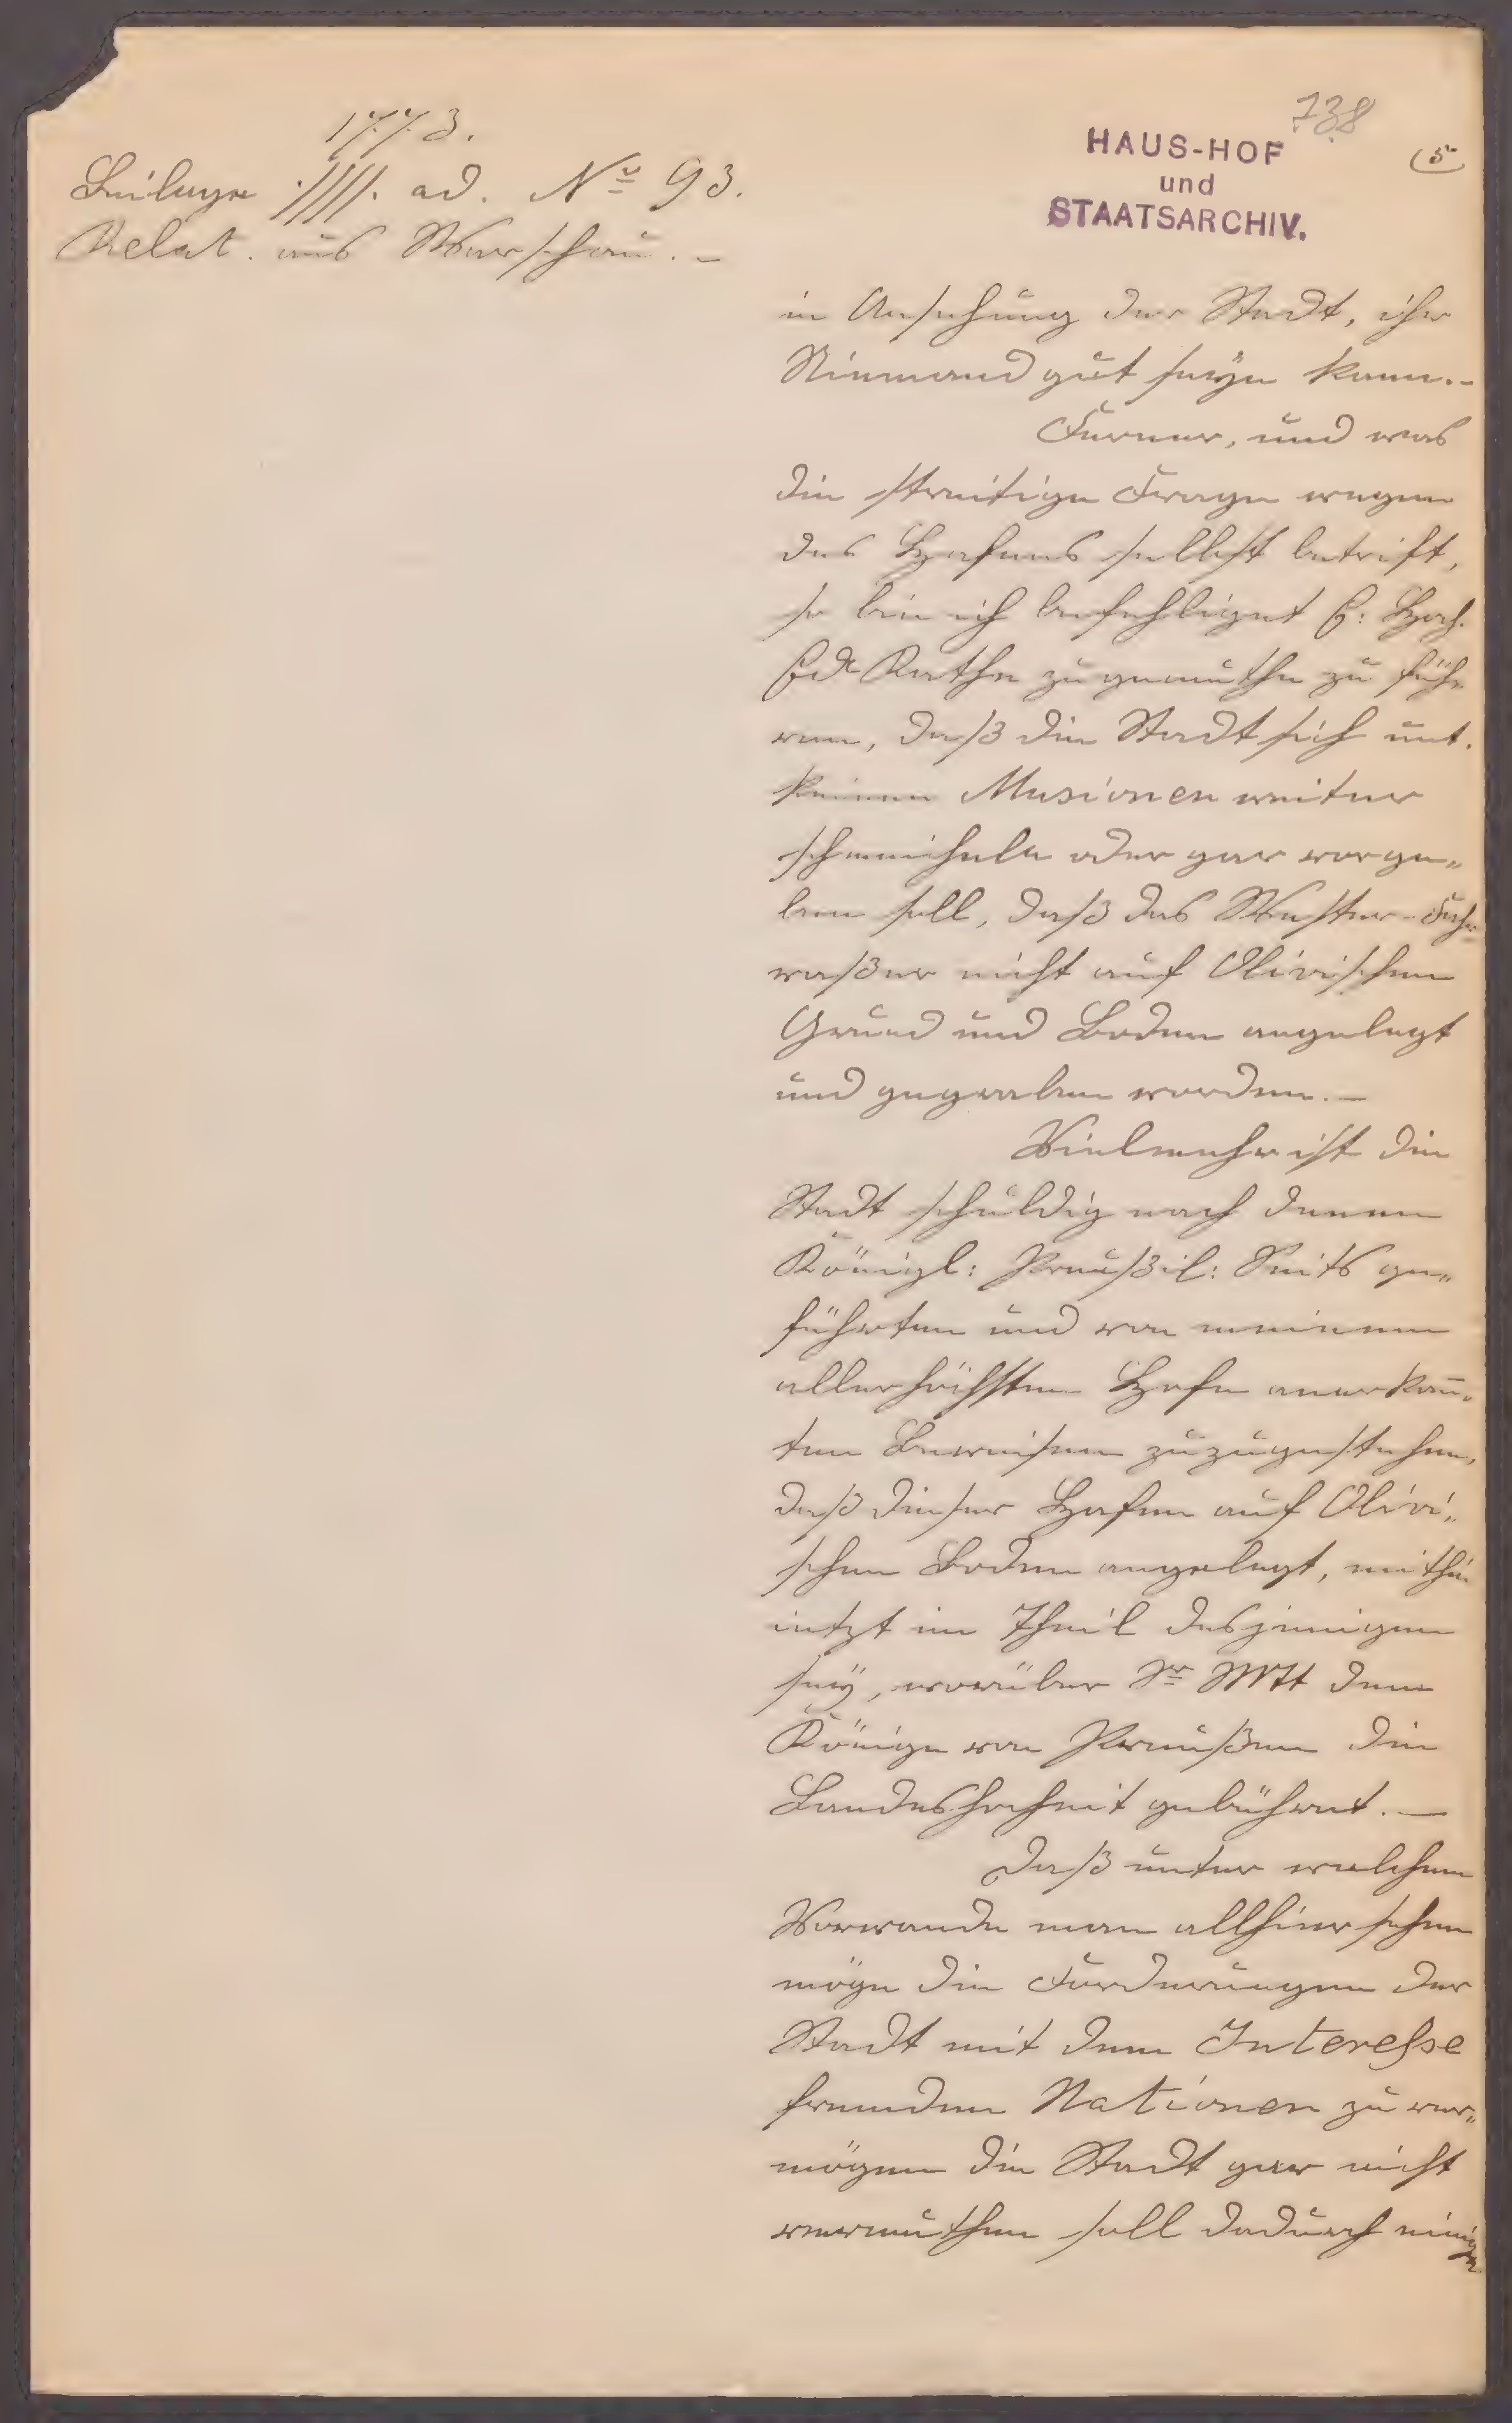 1773.
Beilage ·////. ad. No 93.
Relat. aus Warschau. –
738
HAUS-HOF
und
STAATSARCHIV.
(5
in Ansehung der Stadt, ihr
Niemand gut seyn kann. –
Ferner, und was
die streitige Frage wegen
des Hafens selbst betrift,
so bin ich befehliget E: Hoch.
Ed Rathe zu gemuthe zu füh„
ren, daß die Stadt sich mit
keinen Illusionen weiter
schmeicheln oder gar vorge„
ben soll, daß das Wester-Fahr„
waßer nicht auf Olivischen
Grund und Boden angelegt
und gegraben worden. –
Vielmehr ist die
Stadt schuldig nach denen
Königl: Preußil: Seits ge„
führten und von meinem
allerhöchsten Hofe anerkan̄„
ten Beweisen zuzugestehen,
daß dieser Hafen auf Olivi„
schen Boden angelegt, mithin
ietzt im Theil desjenigen
seÿ, worüber Sr Mtt dem
Könige von Preußen die
Landeshoheit gebühret. –
Daß unter welchem
Vorwande man allhier sehen
möge die Forderungen der
Stadt mit dem Interesse
fremden Nationen zu ver„
mögen die Stadt gar nicht
vermuthen soll dadurch einige